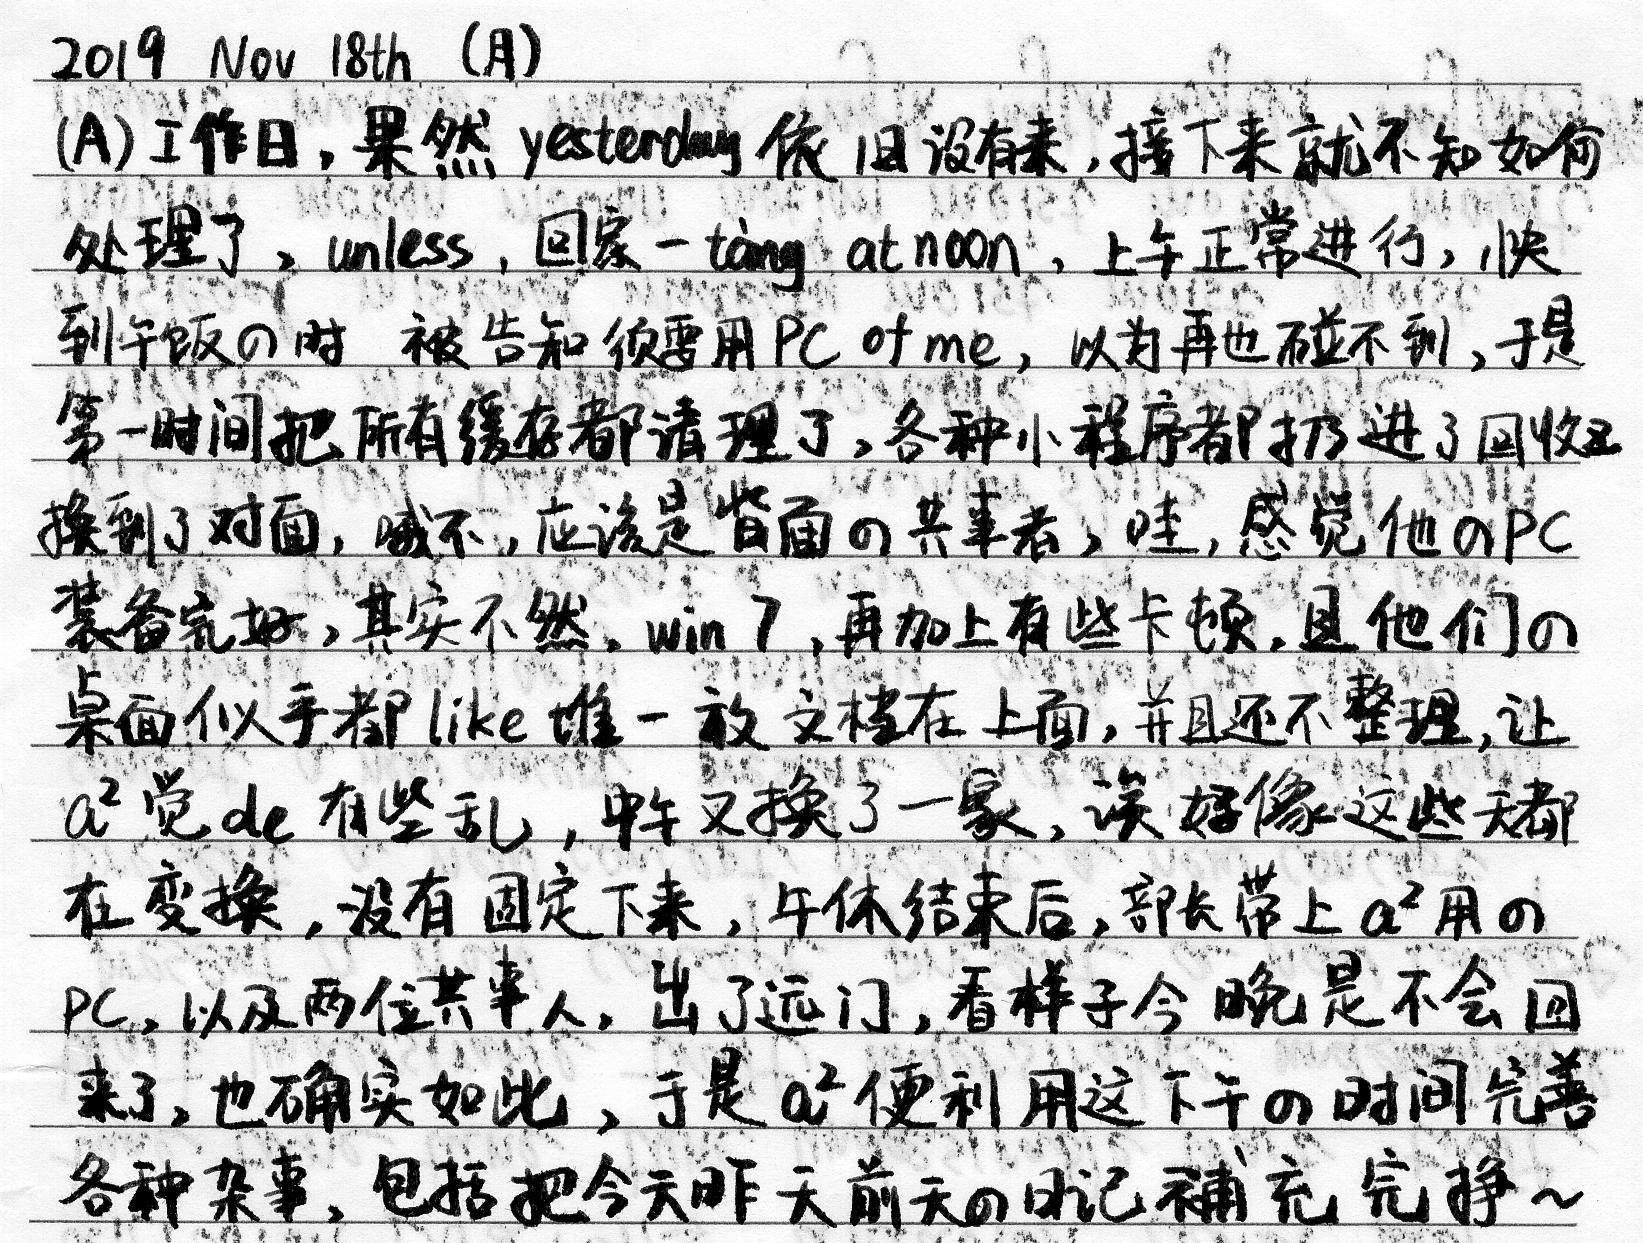 2019 Nov 18th (月)
(A)工作日，果然 yesterday 依旧没有来，接下来就不知如何
处理了，unless，回家一tàng at noon，上午正常进行，快
到午饭の时 被告知须要用PC of me，以为再也碰不到，于是
第一时间把所有缓存都清理了，各种小程序都扔进了回收
换到了对面，哦不，应该是背面の共事者，哇，感觉他のPC
装备完好，其实不然，win 7，再加上有些卡顿，且他们の
桌面似乎都like堆一放文档在上面，并且还不整理，让
a²觉de有些乱，中午又换了一家，诶好像这些天都
在变换，没有固定下来，午休结束后，部长带上a²用の
PC，以及两位共事人，出了远门，看样子今晚是不会回
来了，也确实如此，于是a²便利用这下午の时间完善
各种杂事，包括把今天昨天前天の日记補充完挣～